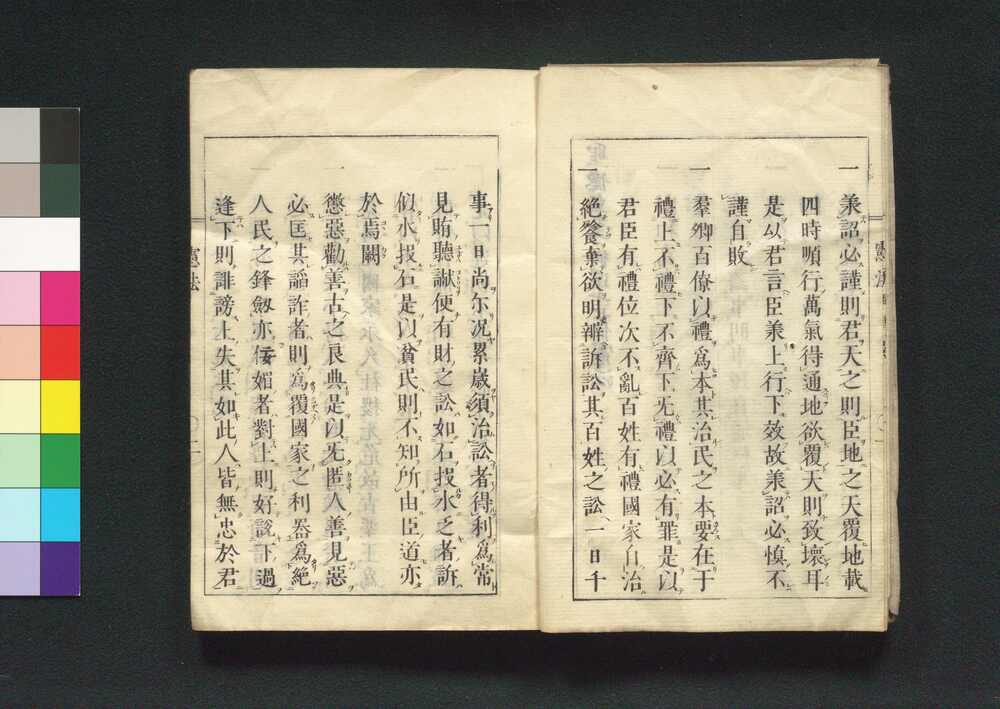 一 承詔必謹則君天之則臣地之天覆地載
四時順行萬氣得通地欲覆天則致壞耳
是以君言臣承上行下效故承詔必慎不
謹自敗
一 羣卿百僚以禮爲本其治民之本要在于
禮上不禮下不齊下无禮以必有罪是以
君臣有禮位次不亂百姓有禮國家自治
一 絶餮棄欲明辨訴訟其百姓之訟一日千
憲法
事一日尚尓况累歳須治訟者得利爲常
見賄聽讞便有財之訟如石投水乏者訴
似水投石是以貧民則不知所由臣道亦
於焉闕
一 懲惡勸善古之良典是以无匿人善見惡
必匡其謟詐者則爲覆國家之利器爲絶
人民之鋒劔亦侫媚者對上則好說下過
逢下則誹謗上失其如此人皆無忠於君
憲法